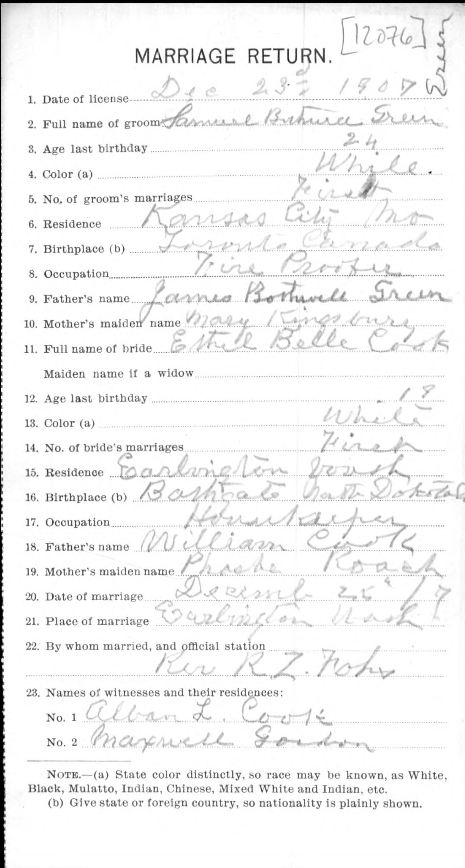 [12076]
Green
MARRIAGE RETURN.
1. Date of license Dec 23d 1907
2. Full name of groom Samuel Bothwell Green
3. Age last birthday 24
4. Color (a) White.
5. No. of groom's marriages First
6. Residence Kansas City Mo
7. Birthplace (b) Toronto Canada
8. Occupation Fire Proofer
9. Father's name James Bothwell Green
10. Mother's maiden name Mary Kingsbury
11. Full name of bride Ethel Belle Cook
Maiden name if a widow
12. Age last birthday 19
13. Color (a) White
14. No. of bride's marriages First
15. Residence Earlington Wash
16. Birthplace (b) Bathgate North Dakota
17. Occupation Housekeeper
18. Father's name William Cook
19. Mother's maiden name Phoebe Roach
20. Date of marriage Decemb 25"
21. Place of marriage Earlington Wash
22. By whom married, and official station
Rev R Z
23. Names of witnesses and their residences:
No. 1 Alban L. Cook
No. 2 Maxwell Gordon
NOTE.—(a) State color distinctly, so race may be known, as White,
Black, Mulatto, Indian, Chinese, Mixed White and Indian, etc.
(b) Give state or foreign country, so nationality is plainly shown.